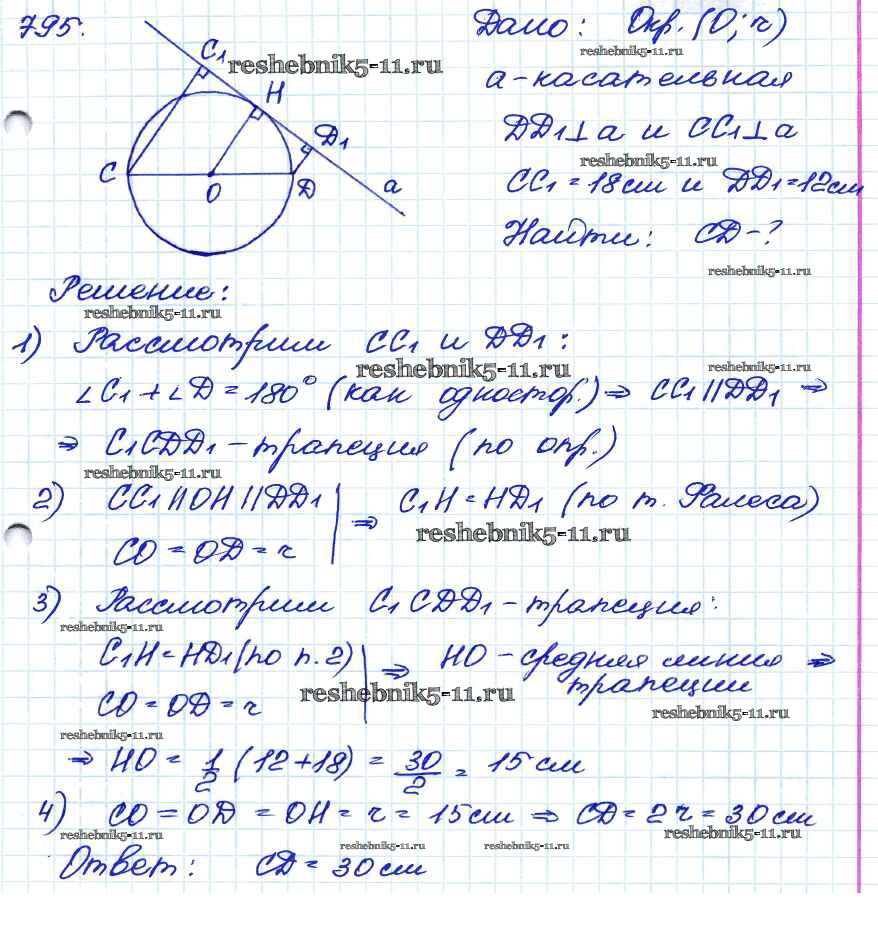 795.
Дано: Окр. (O; r)
reshebnik5-11.ru
C₁
reshebnik5-11.ru
a - касательная
H
D₁
DD₁⊥a и CC₁⊥a
reshebnik5-11.ru
C
O
D
a
CC₁ = 18см и DD₁ = 12см
Найти: CD - ?
reshebnik5-11.ru
Решение:
reshebnik5-11.ru
1) Рассмотрим CC₁ и DD₁:
reshebnik5-11.ru
reshebnik5-11.ru
∠C₁ + ∠D = 180° (как одностор.) ⇒ CC₁ || DD₁ ⇒
⇒ C₁CDD₁ - трапеция (по опр.)
reshebnik5-11.ru
2) CC₁ || OH || DD₁ | ⇒ C₁H = HD₁ (по т. Фалеса)
reshebnik5-11.ru
CO = OD = r
3) Рассмотрим C₁CDD₁ - трапеция:
reshebnik5-11.ru
C₁H = HD₁ (по п. 2) | ⇒ HO - средняя линия ⇒
трапеции
reshebnik5-11.ru
CO = OD = r
reshebnik5-11.ru
reshebnik5-11.ru
⇒ HO = 1/2 (12+18) = 30/2 = 15 см
4) CO = OD = OH = r = 15см ⇒ CD = 2r = 30см
reshebnik5-11.ru
reshebnik5-11.ru
reshebnik5-11.ru
reshebnik5-11.ru
Ответ: CD = 30см